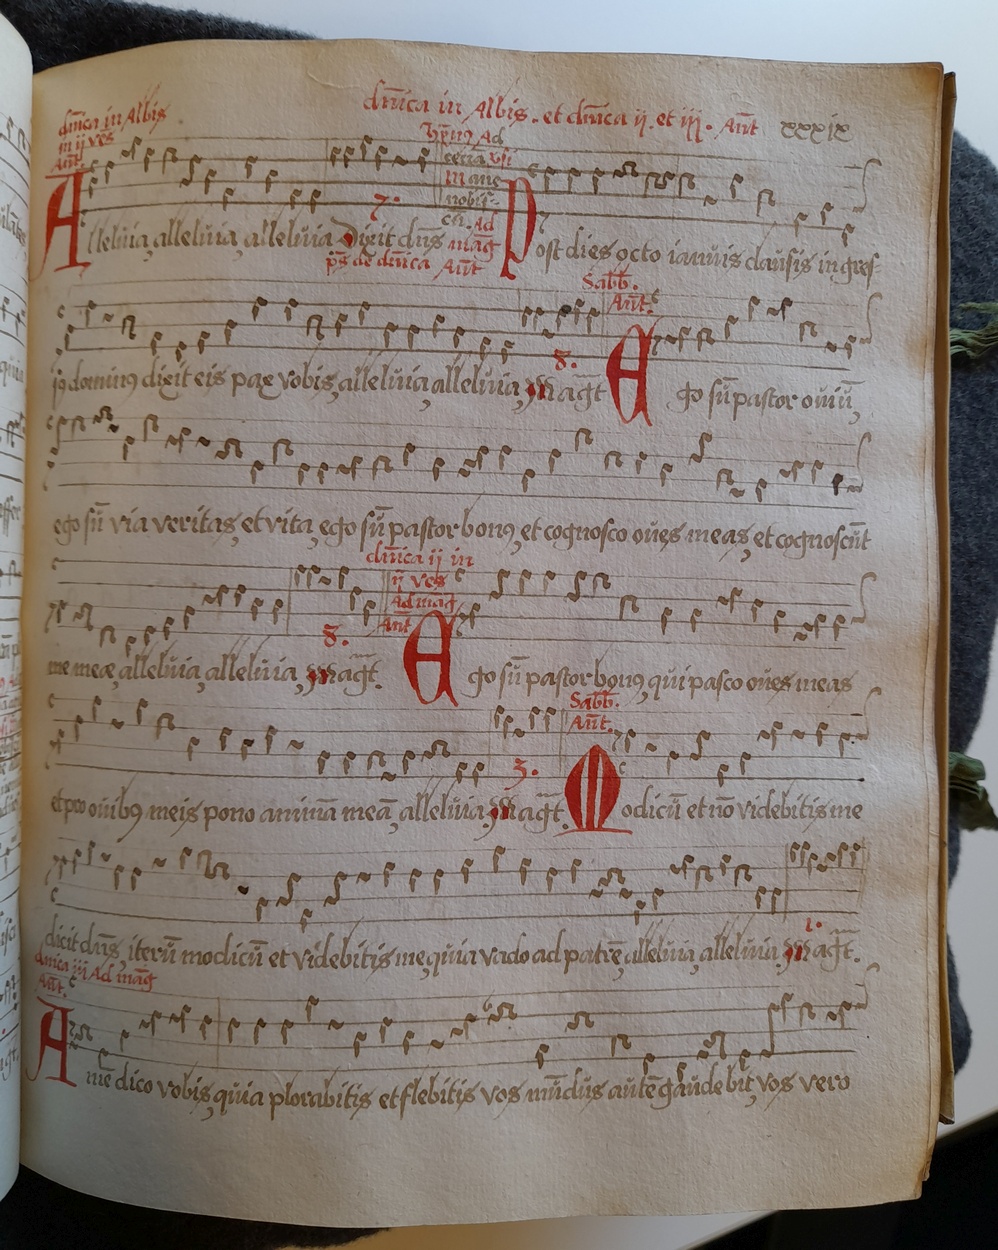 dn̄ica in Albis. et dn̄ica ij. et iij. An̄t xxxix
dn̄ica in Albis
in ij ves̄
An̄t
Alleluia, alleluia, alleluia Dixit dn̄s
7.
p̄s de dn̄ica An̄t
Hȳmnꝯ Ad
cœna usī
mane
nobis-
cū. Ad
mag̅
Post dies octo ianuis clausis ingres-
sꝯ dominꝯ dixit eis pax vobis, alleluia, alleluia, Mag̅t
8.
Sab̄b.
An̄t.
Ego sū pastor oviū,
ego sū via veritas, et vita, ego sū pastor bonꝯ, et cognosco oves meas, et cognoscūt
me meæ, alleluia, alleluia, Mag̅t.
8.
dn̄ica ij in
ij ves̄
Ad mag̅
An̄t
Ego sū pastor bonꝯ, qui pasco oves meas
et pro ovibꝯ meis pono animā meā, alleluia, Mag̅t.
3.
Sab̄b.
An̄t.
Modicū et nō videbitis me
dicit dn̄s, iterū modicū et videbitis me, quia vado ad patrē, alleluia, alleluia. Mag̅t.
1.
dn̄ica iij Ad mag̅
An̄t.
Amē dico vobis, quia plorabitis et flebitis vos mūdus autē gaudebit, vos vero